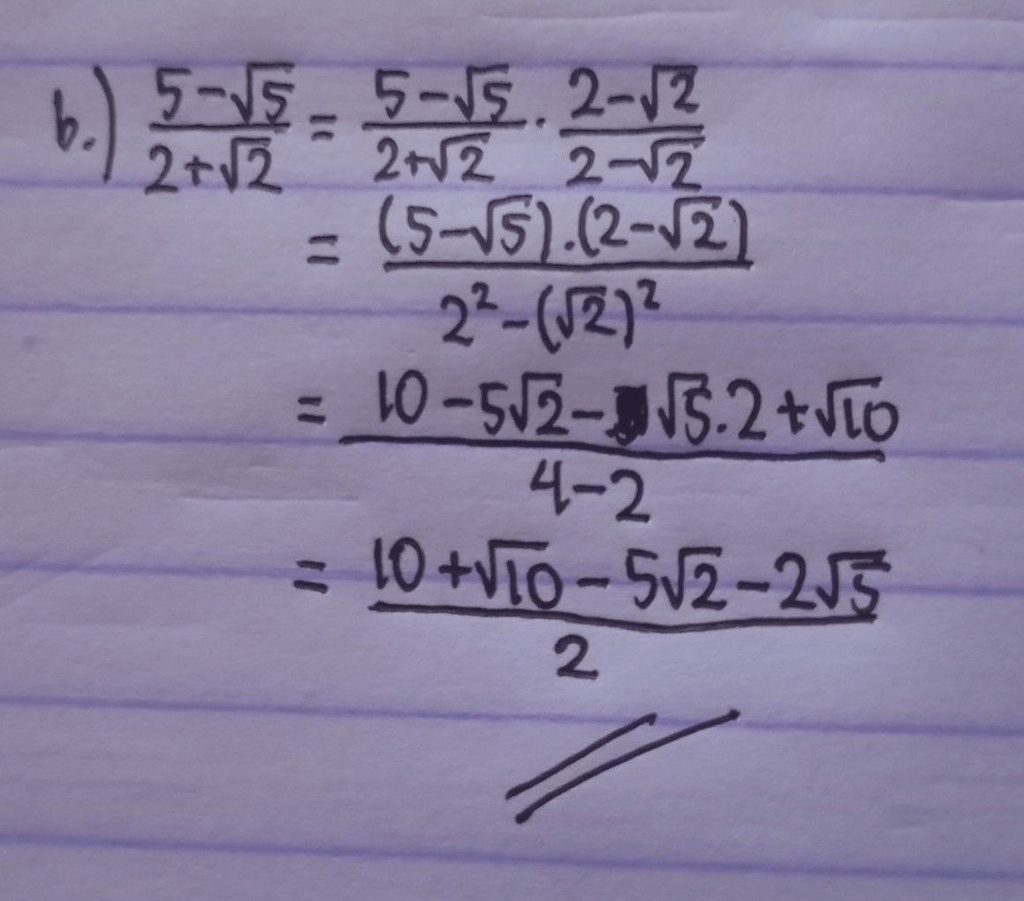 b.) \frac{5-√5}{2+√2} = \frac{5-√5}{2+√2} . \frac{2-√2}{2-√2}
= \frac{(5-√5).(2-√2)}{2²-(√2)²}
= \frac{10-5√2-√5.2+√10}{4-2}
= \frac{10+√10-5√2-2√5}{2}